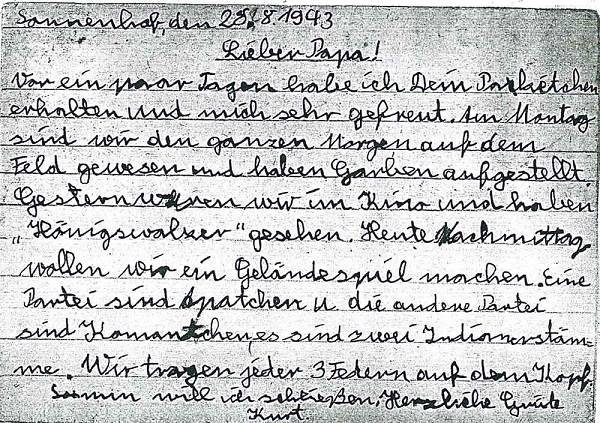 Sonnenhof, den 25.8.1943
Lieber Papa!
Vor ein paar Tagen habe ich Dein Packetchen
erhalten und mich sehr gefreut. Am Montag
sind wir den ganzen Morgen auf dem
Feld gewesen und haben Garben aufgestellt.
Gestern waren wir im Kino und haben
„Königswalzer“ gesehen. Heute Nachmittag
wollen wir ein Geländespiel machen. Eine
Partei sind Apatchen u. die andere Partei
sind Komantchen, es sind zwei Indianerstäm-
me. Wir tragen jeder 3 Federn auf dem Kopf.
Somin will ich schließen, Herzliche Grüße
Kurt.